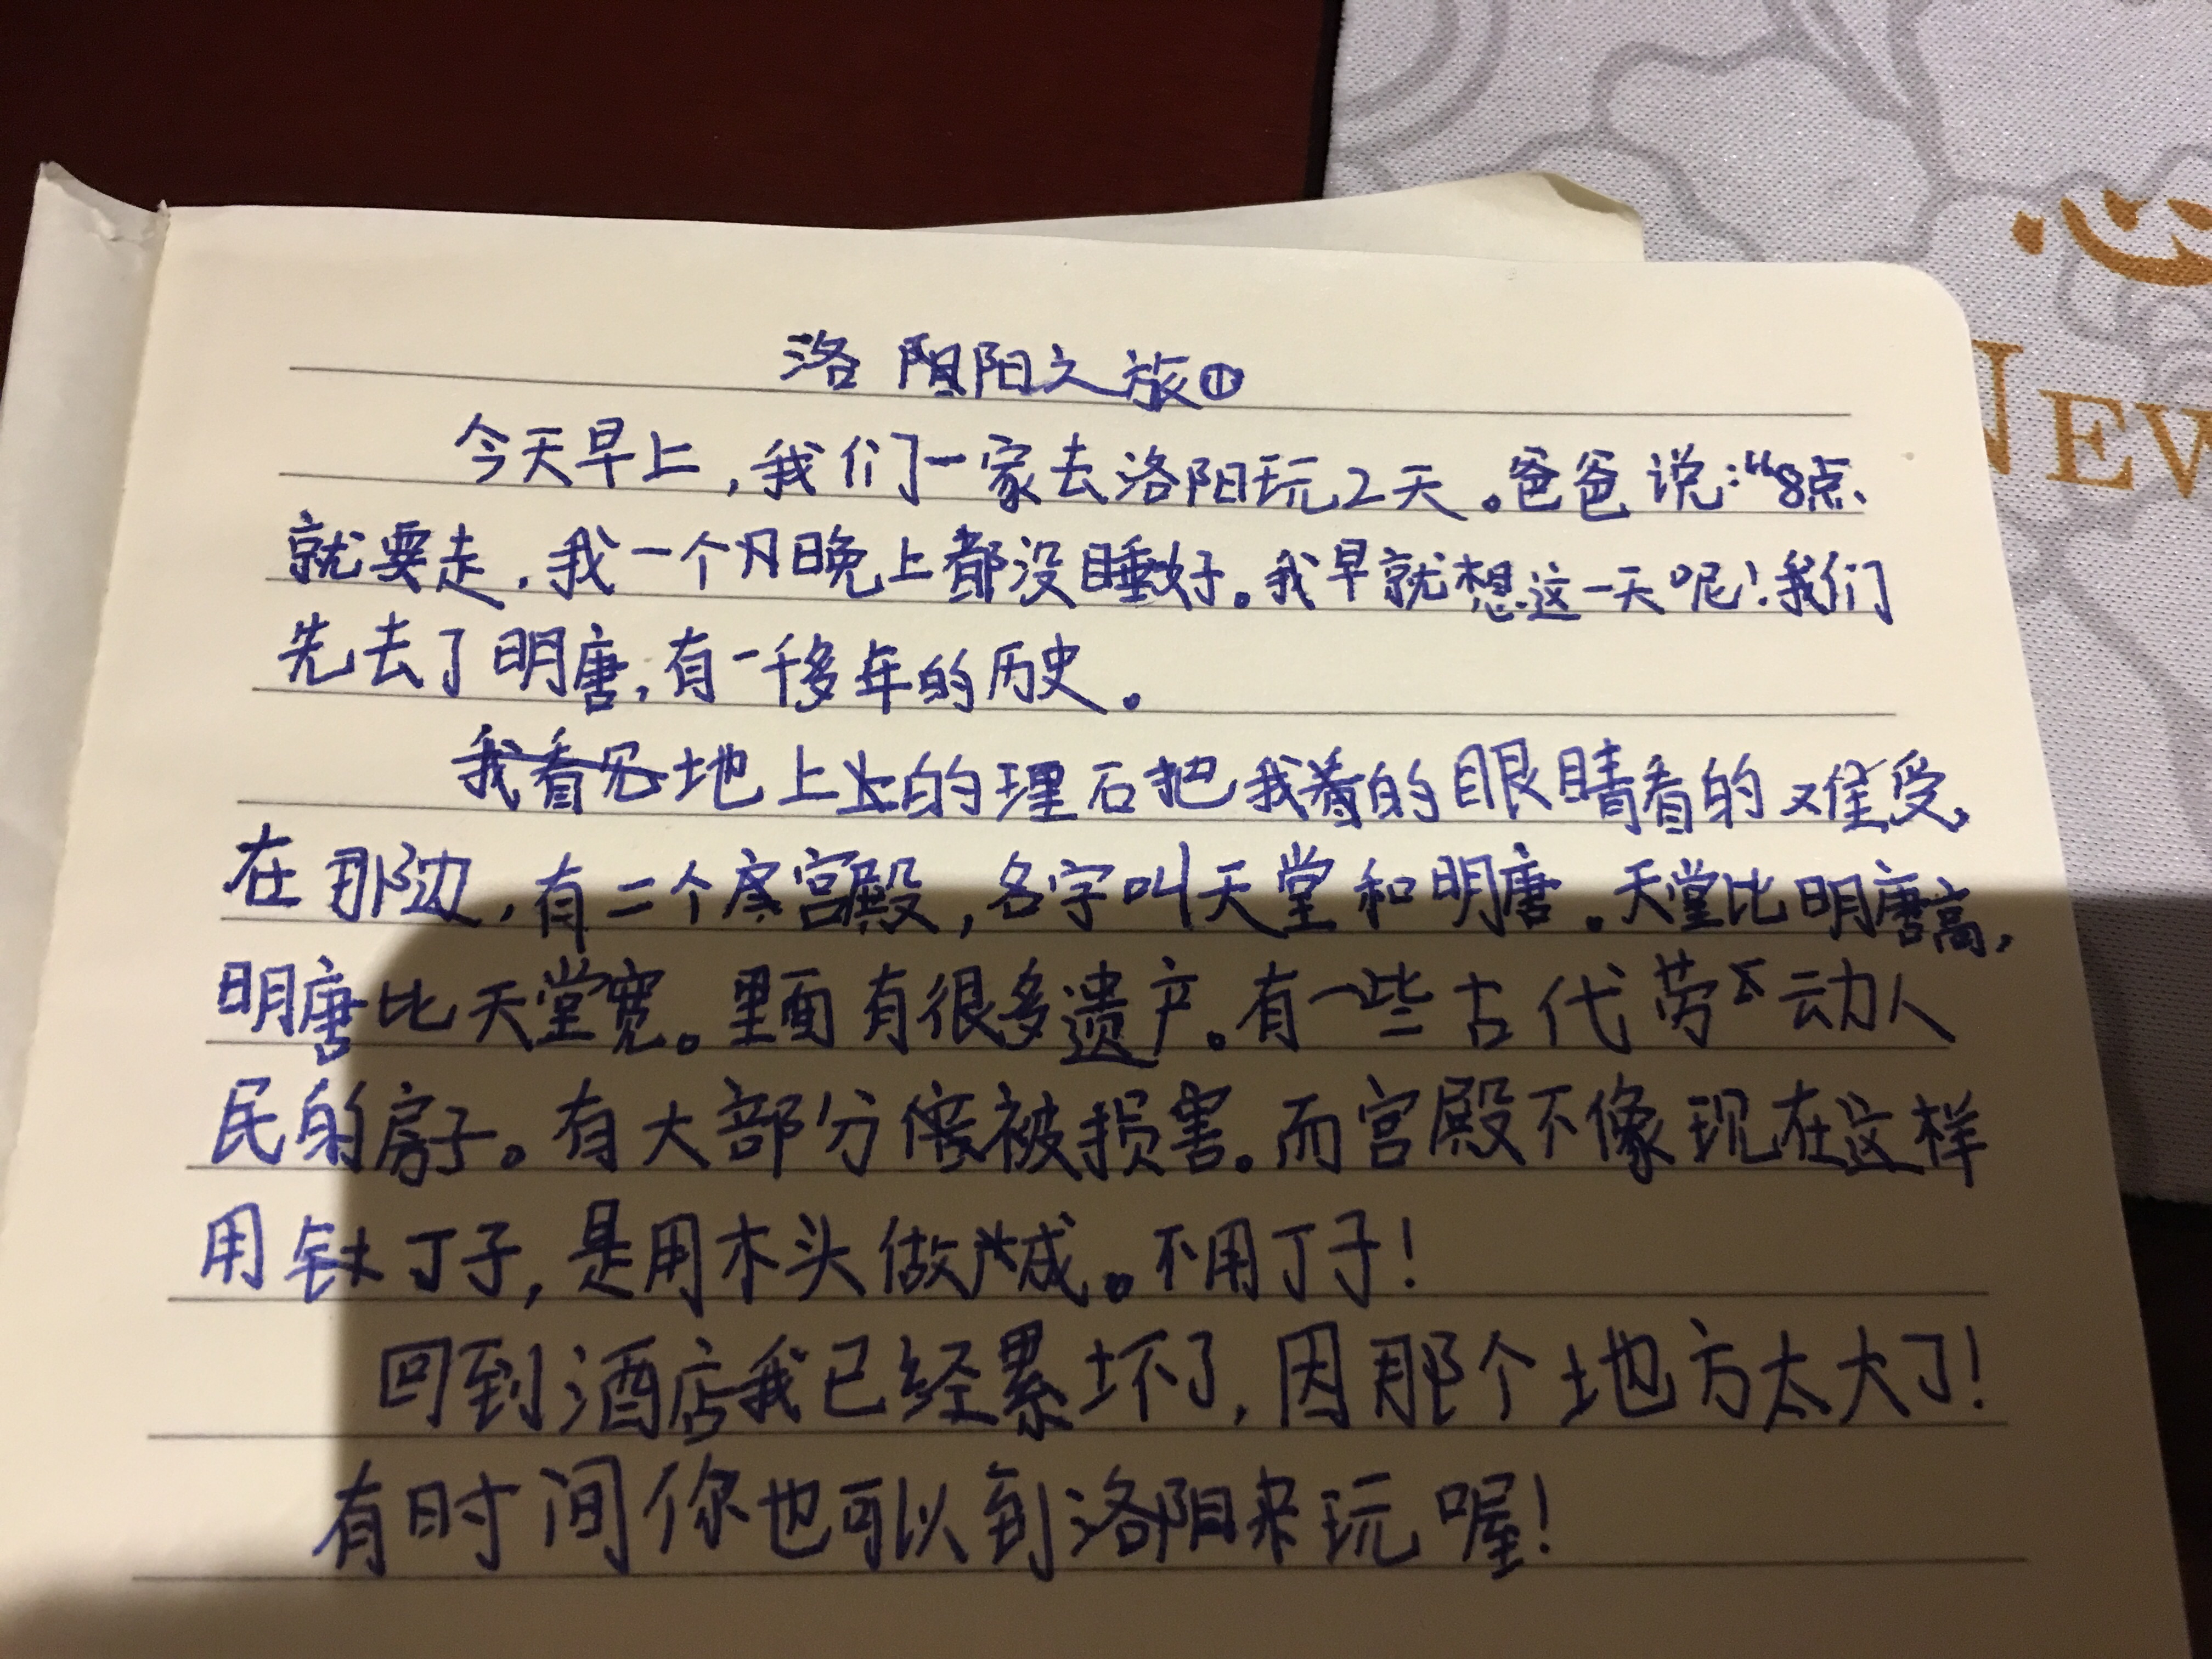 洛阳之旅①
今天早上，我们一家去洛阳玩2天。爸爸说：“8点
就要走，我一个月晚上都没睡好。我早就想这一天呢！我们
先去了明唐，有一千多年的历史。
我看见地上的理石把我的眼睛看的难受，
在那边，有二个宫殿，名字叫天堂和明唐。天堂比明唐高，
明唐比天堂宽。里面有很多遗产。有一些古代劳动人
民的房子。有大部分被损害。而宫殿不像现在这样
用丁子，是用木头做成。不用丁子！
回到酒店我已经累坏了，因那个地方太大了！
有时间你也可以到洛阳来玩喔！
心
NEW